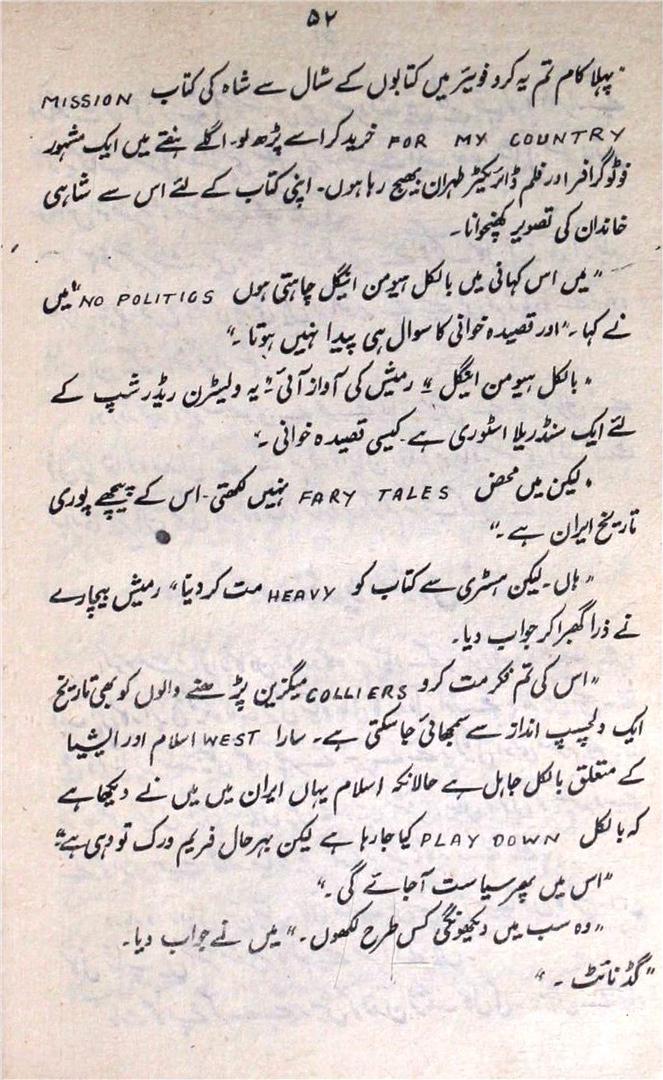 ۵۲
"پہلا کام تم یہ کرد فوئیر میں کتابوں کے سٹال سے شاہ کی کتاب MISSION
FOR MY COUNTRY خرید کر اسے پڑھ لو۔ اگلے ہفتے میں ایک مشہور
فوٹو گرافر اور فلم ڈائریکٹر طہران بھیج رہا ہوں۔ اپنی کتاب کے لئے اس سے شاہی
خاندان کی تصویر کھنچوانا۔
"میں اس کہانی میں بالکل ہیومن اینگل چاہتی ہوں NO POLITICS" میں
نے کہا۔ "اور قصیدہ خوانی کا سوال ہی پیدا نہیں ہوتا۔"
"بالکل ہیومن اینگل" رمیش کی آواز آئی۔ "یہ ولیٹرن ریڈر شپ کے
لئے ایک سنڈریلا اسٹوری ہے۔ کیسی قصیدہ خوانی۔"
"لیکن میں محض FARY TALES نہیں لکھتی۔ اس کے پیچھے پوری
تاریخ ایران ہے۔"
"ہاں۔ لیکن ہسٹری سے کتاب کو HEAVY مت کر دینا" رمیش بیچارے
نے ذرا گھبرا کر جواب دیا۔
"اس کی تم فکر مت کرو COLLIERS میگزین پڑھنے والوں کو بھی تاریخ
ایک دلچسپ انداز سے سمجھائی جا سکتی ہے۔ سارا WEST اسلام اور ایشیا
کے متعلق بالکل جاہل ہے حالانکہ اسلام یہاں ایران میں میں نے دیکھا ہے
کہ بالکل PLAY DOWN کیا جا رہا ہے لیکن بہرحال فریم ورک تو وہی ہے"
"اس میں پھر سیاست آجائے گی۔"
"وہ سب میں دیکھونگی کس طرح لکھوں۔" میں نے جواب دیا۔
"گڈ نائٹ۔"